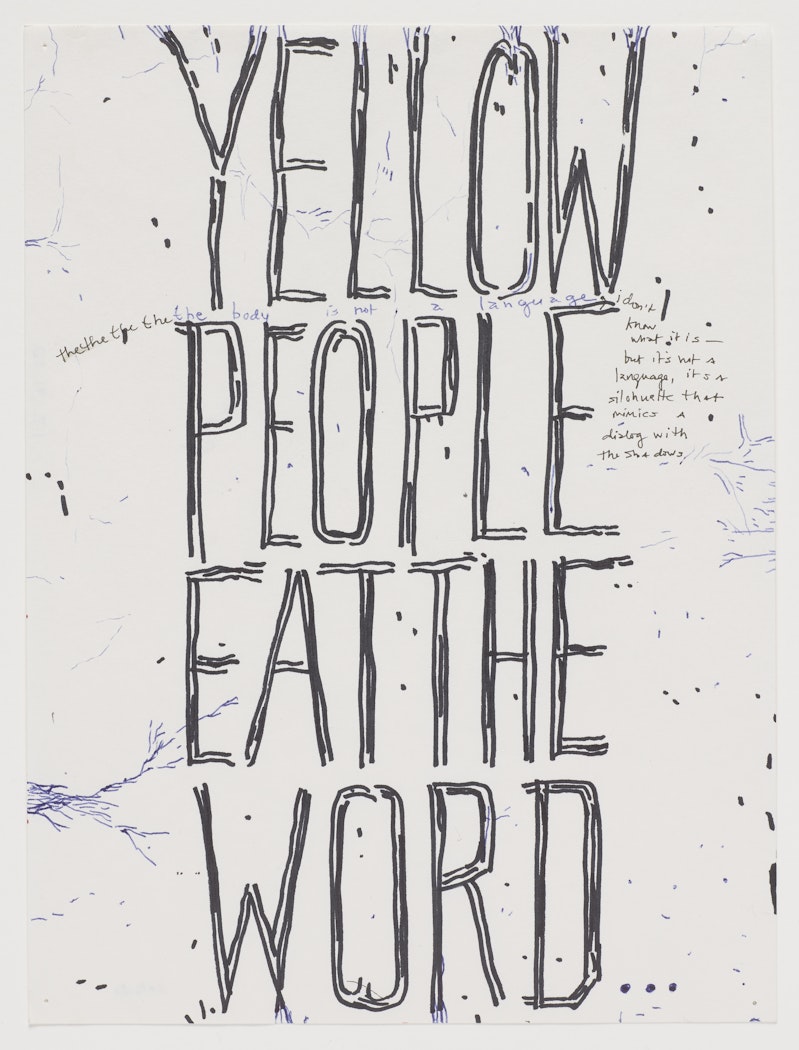 YELLOW
the the the the the body is not a language, i don't
know
what it is —
but it's not a
language, it's a
silohuette that
mimics a
dialog with
the shadows
PEOPLE
EAT THE
WORD...